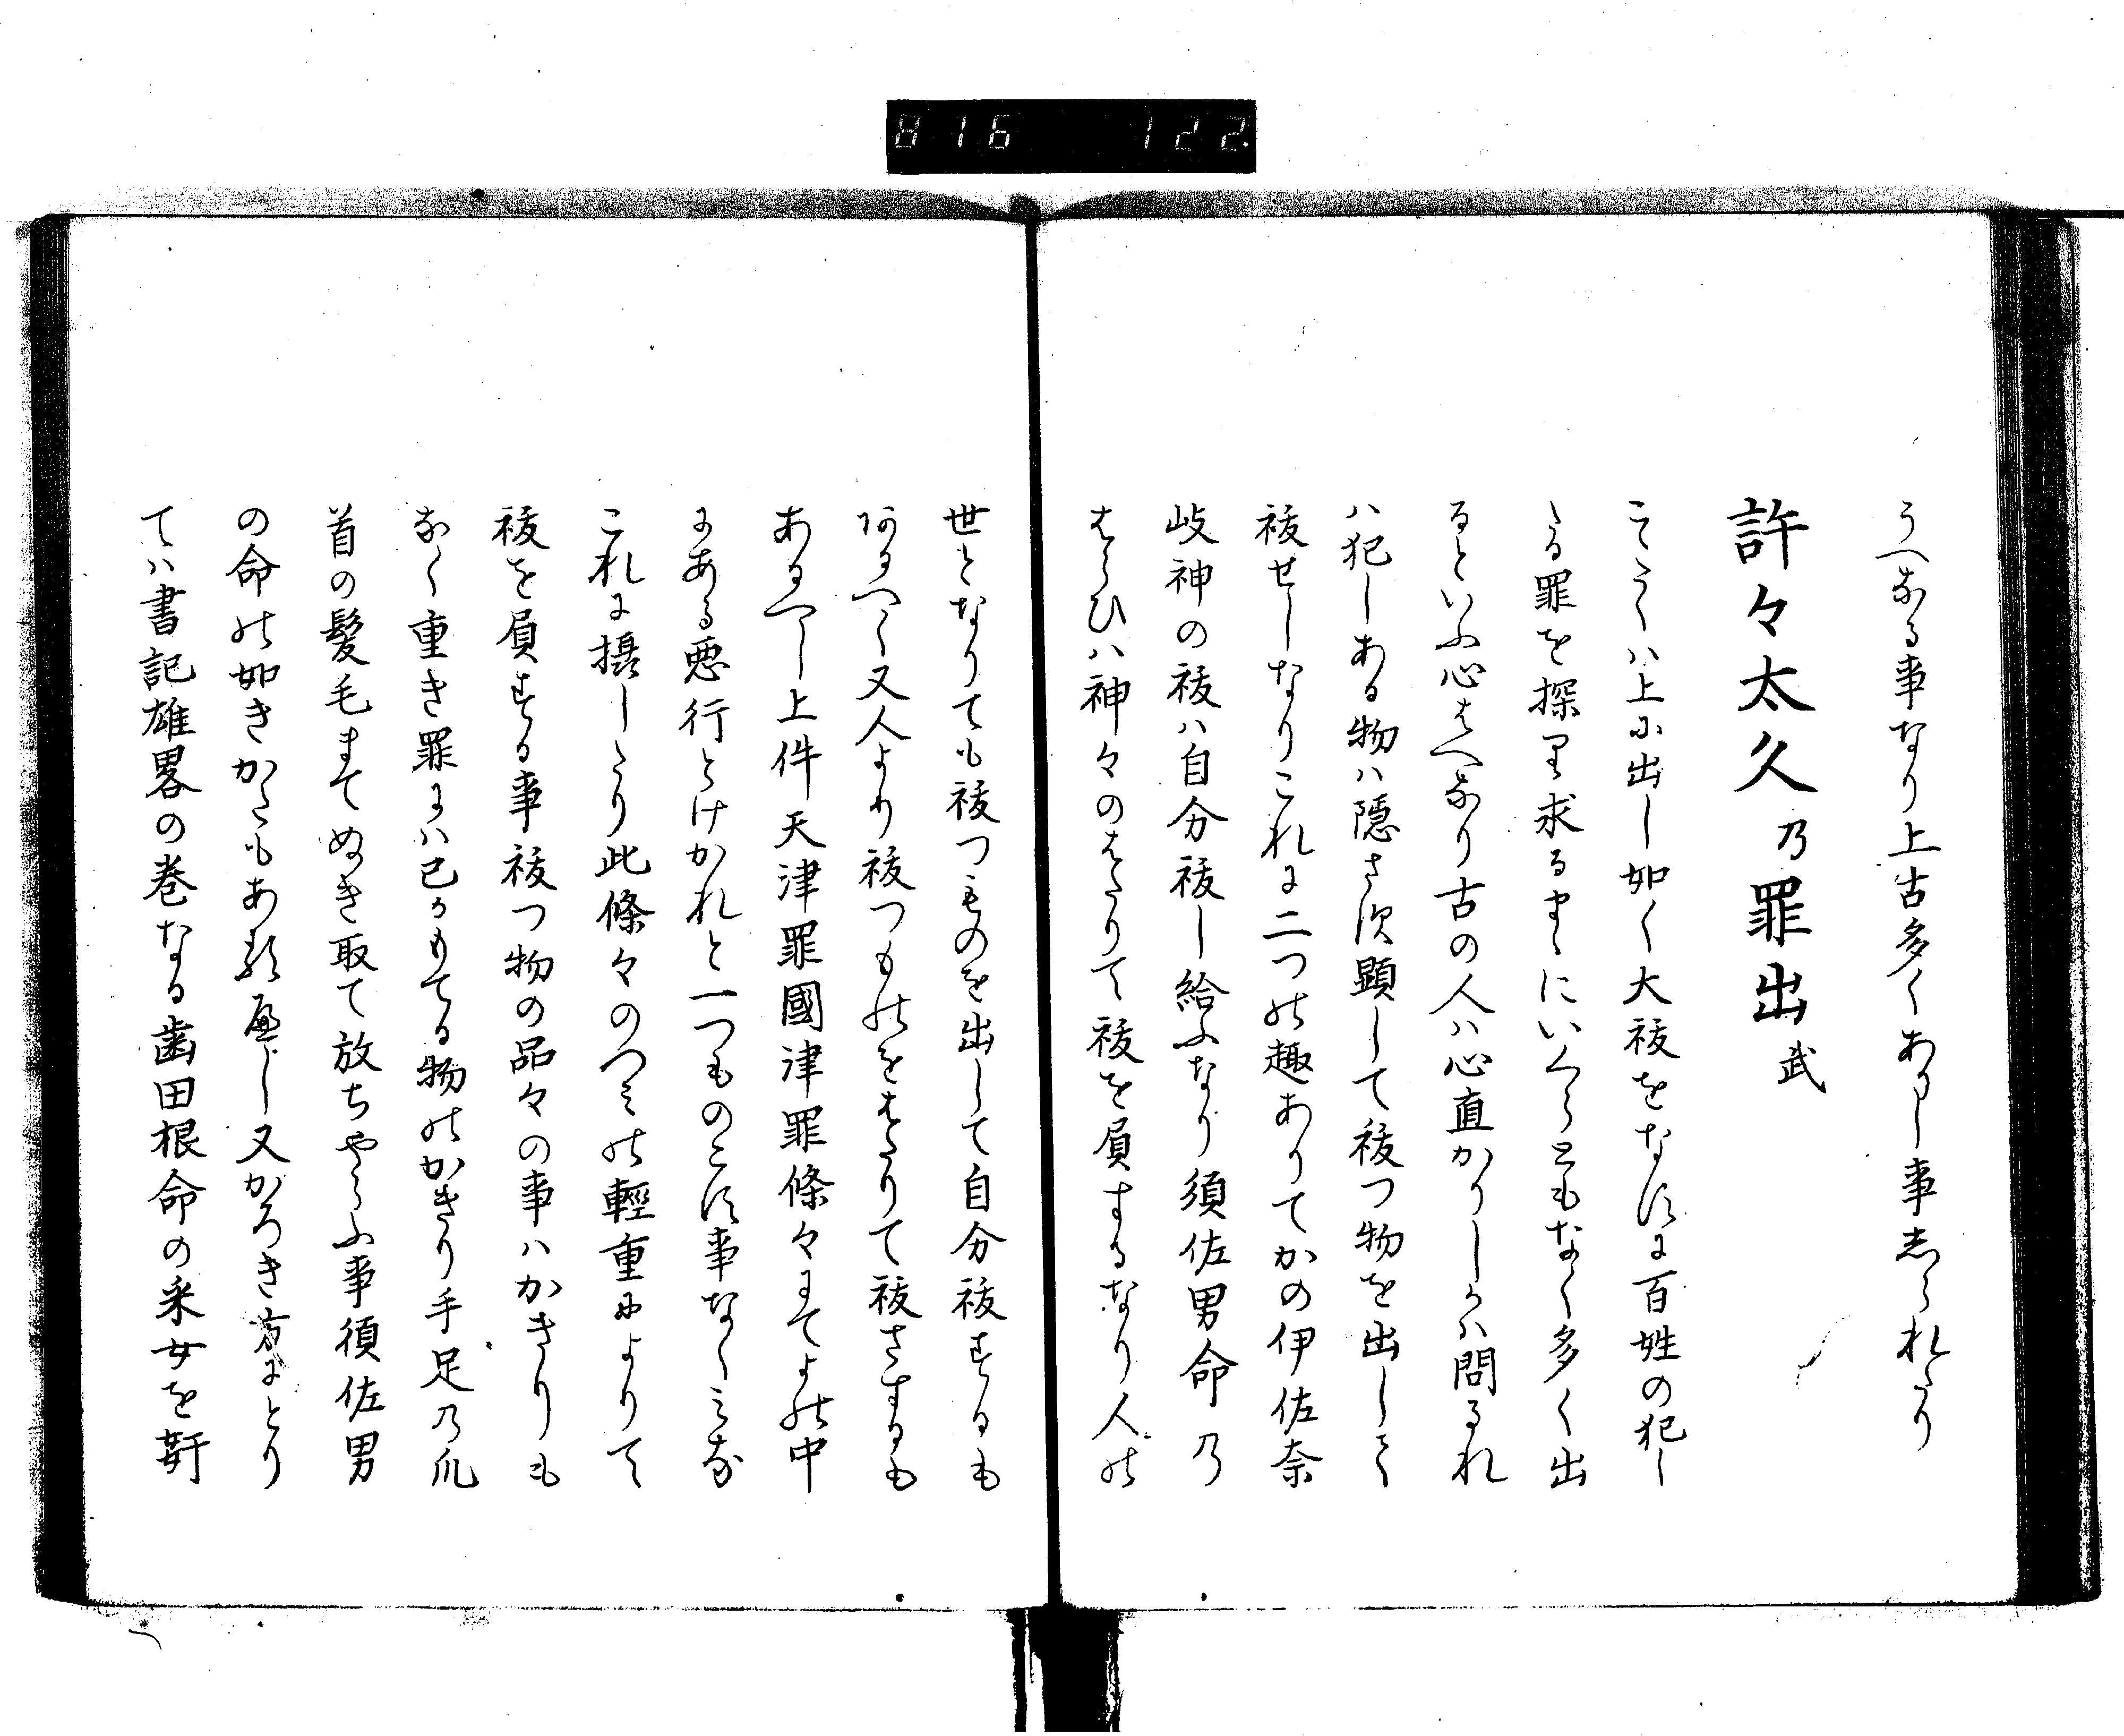 816 122.
うへなる事なり上古多くありし事しられたり
許々太久乃罪出武
こゝたくハ上に出し如く大祓をなすに百姓の犯し
たる罪を探り求るまゝにいくらともなく多く出
るといふ心はへなり古の人ハ心直かりしかハ問るれ
ハ犯しある物ハ隠さす顕して祓つ物を出して
祓せしなりこれに二つの趣ありてかの伊佐奈
岐神の祓ハ自分祓し給ふなり須佐男命乃
はらひハ神々のはたりて祓を負するなり人の
世となりても祓つものを出して自分祓するも
あるへく又人より祓つものをはたりて祓さするも
あるへし上件天津罪國津罪條々にてよの中
にある悪行とけかれと一つものこす事なくみな
これに摂したり此條々のつみの輕重によりて
祓を負する事祓つ物の品々の事ハかきりも
なく重き罪にハ己かもてる物のかきり手足乃爪
首の髪毛まてぬき取て放ちやらふ事須佐男
の命の如きかたもあるへし又かろき方にとり
てハ書記雄畧の巻なる歯田根命の采女を奸